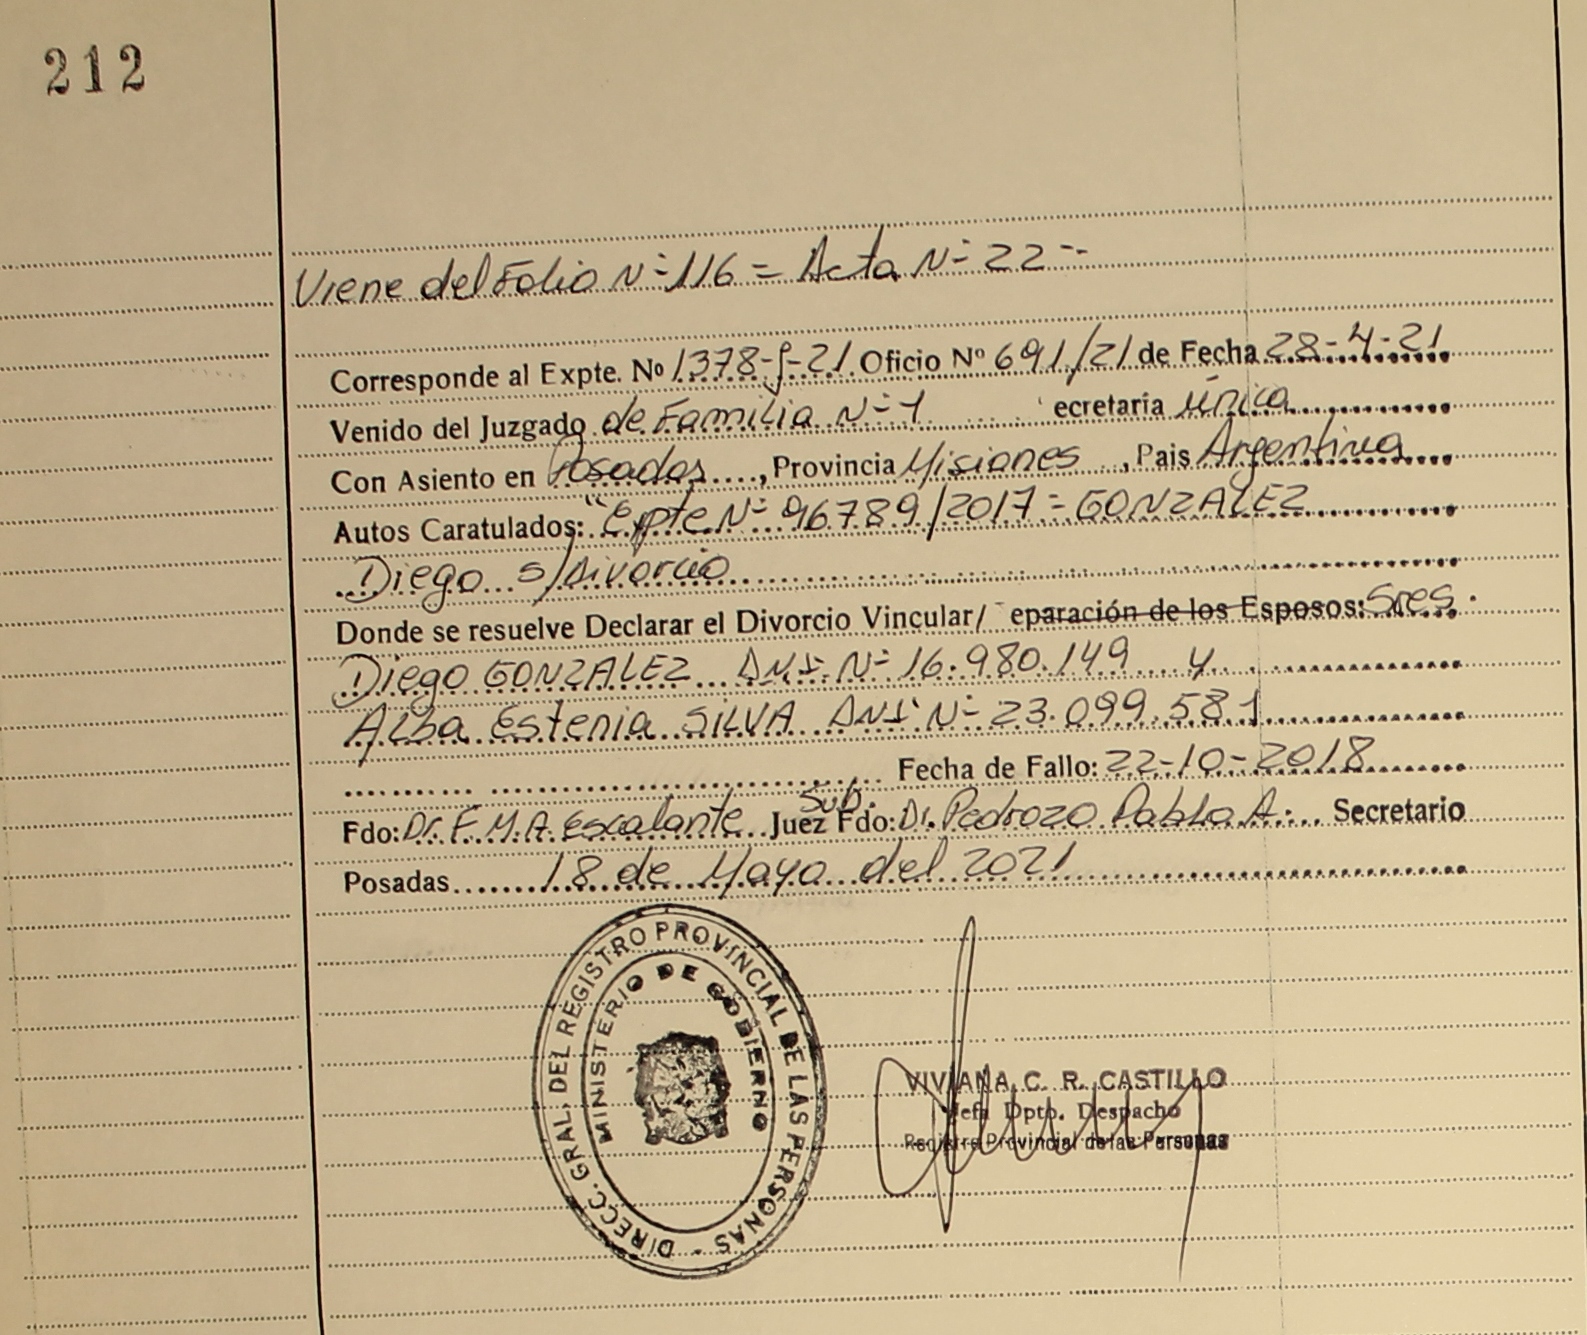 212
Viene del Folio Nº 116 = Acta Nº 22 --
Corresponde al Expte. Nº 1378-J-21 Oficio Nº 691/21 de Fecha 28-4-21
Venido del Juzgado de Familia Nº 1 ecretaría única
Con Asiento en Posadas, Provincia Misiones, Pais Argentina
Autos Caratulados: "Expte Nº 96789/2017 = GONZALEZ
Diego s/Divorcio
Donde se resuelve Declarar el Divorcio Vincular/ eparación de los Esposos: Sres.
Diego GONZALEZ DNI. Nº 16.980.149 y
Alba Estenia SILVA DNI Nº 23.099.581
Fecha de Fallo: 22-10-2018
Fdo: Dr. F. M. A. Escalante Juez Sub. Fdo: Dr. Pedrozo Pablo A. Secretario
Posadas 18 de Mayo del 2021
DIRECC. GRAL. DEL REGISTRO PROVINCIAL DE LAS PERSONAS -
MINISTERIO DE GOBIERNO
VIVIANA C. R. CASTILLO
Jefa Dpto. Despacho
Registro Provincial de las Personas